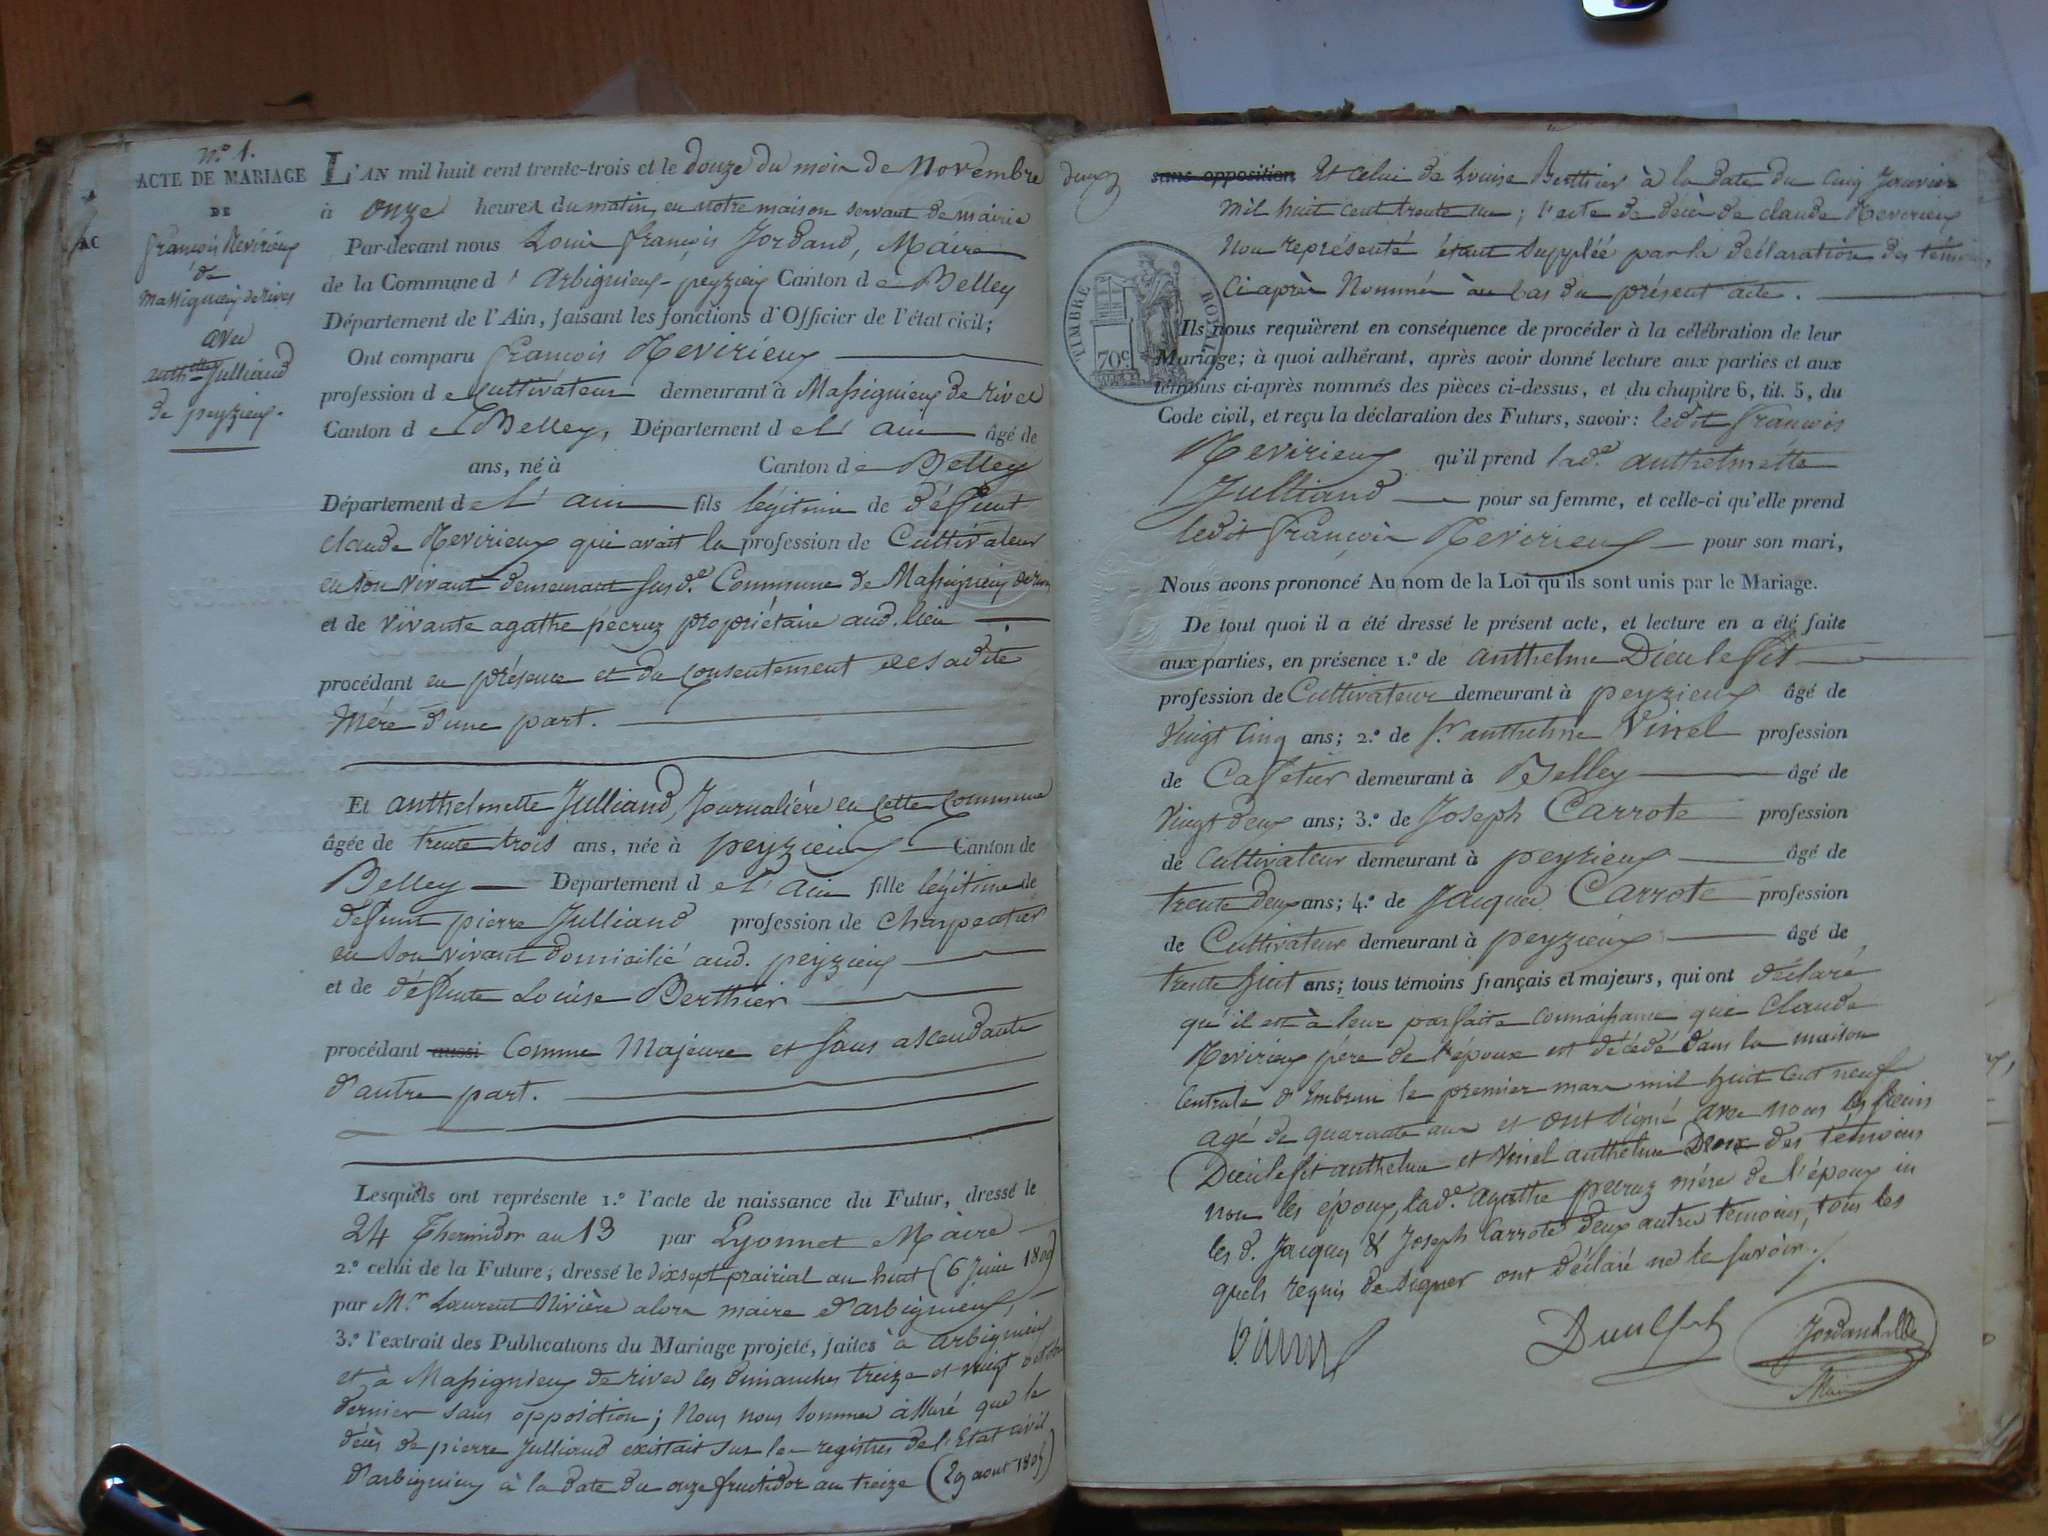 n.º 1.
ACTE DE MARIAGE
DE
françois Revirieux
de
Massignieux de rives
avec
anth.tte Julliand
de peyzieux.
L'AN mil huit cent trente-trois et le douze du mois de Novembre
à onze heures du matin, en notre maison servant de mairie
Par-devant nous Louis françois Jordand, Maire
de la Commune d'Arbignieux-peyzieux Canton de Belley
Département de l'Ain, faisant les fonctions d'Officier de l'état civil;
Ont comparu françois Revirieux
profession de cultivateur demeurant à Massignieux de rives
Canton de Belley, Département de l'ain âgé de
ans, né à Canton de Belley
Département de l'ain fils légitime de défunt
claude Revirieux qui avait la profession de Cultivateur
en son vivant demeurant susd.e Commune de Massignieux de rives
et de vivante agathe pécruz propriétaire aud. lieu
procédant en présence et du consentement de sadite
Mère d'une part.
Et anthelmette Julliand, Journalière en cette Commune
âgée de trente trois ans, née à peyzieux Canton de
Belley Département de l'ain fille légitime de
défunt pierre Julliand profession de charpentier
en son vivant domicilié aud. peyzieux
et de défunte Louise Berthier
procédant aussi Comme Majeure et sans ascendants
d'autre part.
Lesquels ont représente 1.º l'acte de naissance du Futur, dressé le
24 Thermidor an 13 par Lyonnet Maire
2.º celui de la Future; dressé le dixsept prairial an huit (6 Juin 1800)
par M.r Laurent Rivière alors maire d'arbignieux,
3.º l'extrait des Publications du Mariage projeté, faites à arbignieux
et à Massignieux de rives les dimanches treize et vingt octobre
dernier sans opposition; Nous nous sommes assuré que le
décès de pierre Julliand existait sur les registres de l'Etat civil
d'arbignieux à la date du onze fructidor an treize (29 aout 1805)
deux sans opposition Et celui de Louise Berthier à la date du cinq Janvier
mil huit cent trente un; l'acte de décès de claude Revirieux
Non représenté étant suppléé par la déclaration des témoins
Ci-après Nommés au bas du présent acte.
TIMBRE ROYAL
70c
Ils nous requièrent en conséquence de procéder à la célébration de leur
Mariage; à quoi adhérant, après avoir donné lecture aux parties et aux
témoins ci-après nommés des pièces ci-dessus, et du chapitre 6, tit. 5, du
Code civil, et reçu la déclaration des Futurs, savoir: ledit françois
Revirieux qu'il prend lad.e anthelmette
Julliand pour sa femme, et celle-ci qu'elle prend
ledit françois Revirieux pour son mari,
Nous avons prononcé Au nom de la Loi qu'ils sont unis par le Mariage.
De tout quoi il a été dressé le présent acte, et lecture en a été faite
aux parties, en présence 1.º de anthelme Dieulefit
profession de Cultivateur demeurant à peyzieux âgé de
Vingt Cinq ans; 2.º de S.r anthelme Vinel profession
de Cafetier demeurant à Belley âgé de
Vingt deux ans; 3.º de Joseph Carrote profession
de Cultivateur demeurant à peyzieux âgé de
trente deux ans; 4.º de Jacques Carrote profession
de Cultivateur demeurant à peyzieux âgé de
trente huit ans; tous témoins français et majeurs, qui ont déclaré
qu'il est à leur parfaite connaissance que Claude
Revirieux père de l'époux est décédé dans la maison
Centrale d'Embrun le premier mars mil huit cent neuf
agé de quarante ans et ont signé avec nous les sieurs
Dieulefit anthelme et Vinel anthelme Deux des témoins
non les époux, lad.e agathe pecruz mère de l'époux ni
les d. Jacques & Joseph Carrote deux autres témoins, tous les
quels requis de signer ont déclaré ne le savoir.
Dieulefit
Maire